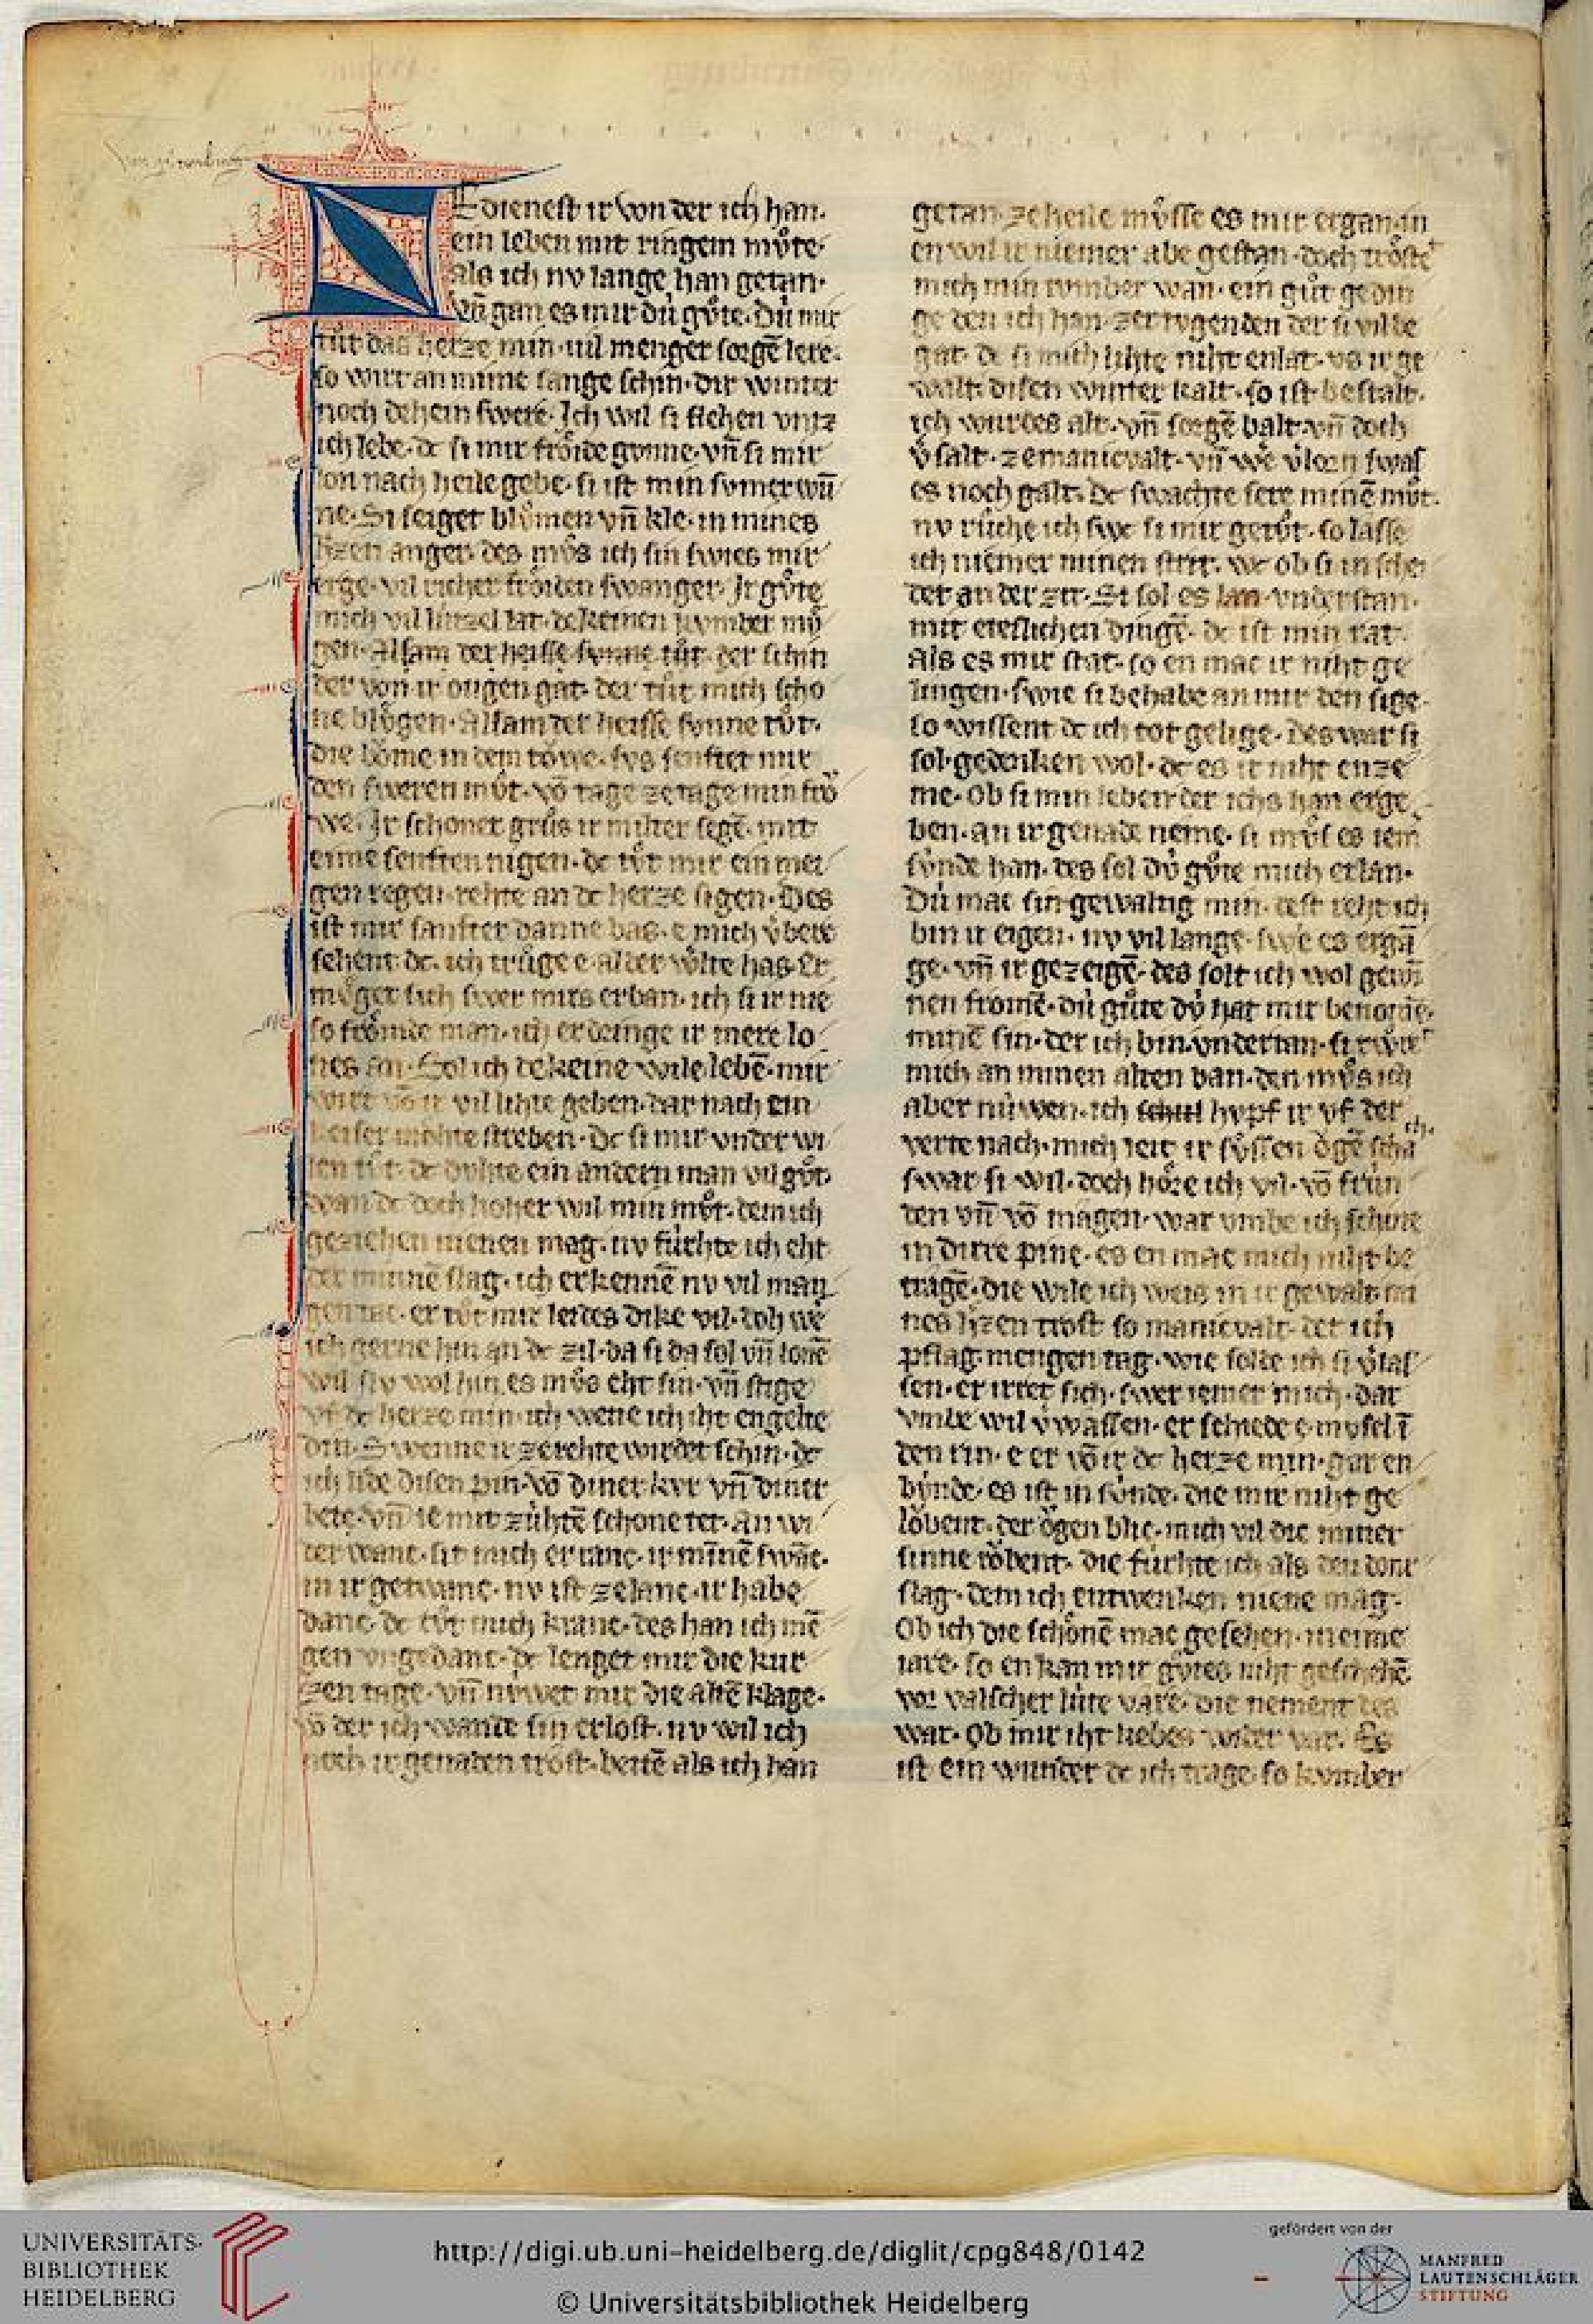 Zedienest ir von der ich han.
ein leben mit ringem mvͦte.
als ich nv lange han getan.
vn̄ gan es mir dú gvͦte. Dú mir
tuͦt das herze min. vil menger sorgē lere.
so wirt an mime sange schin. dir winter
noch dehein swere. Ich wil si flehen vntz
ich lebe. dc si mir froͤide gvnne. vn̄ si mir
lon nach heile gebe. si ist min svmer wū
ne. Si seiget blvͦmen vn̄ kle. in mines
h̄zen anger. des mvͦs ich sin swies mir
erge. vil richer froͤiden swanger. Ir gvͤte
mich vil lúzzel lat. dekeinen kvmber mvͤ
gen. Alsam der heisse svnne tuͦt. der schin
der von ir ougen gat. der tuͦt mich scho
ne blvͤgen. Alsam der heisse svnne tvͦt.
die boͮme in dem toͮwe. svs senftet mir
den sweren mvͦt. vō tage ze tage min froͮ
we. Ir schoner gruͦs ir milter segē. mit
eime senften nigen. dc tvͦt mir ein mei
gen regen. rehte an dc herze sigen. Des
ist mir sanfter danne bas. e mich v̓bere
sehent dc. ich truͤge e aller wͤlte has. Er
moͤget sich swer mirs erban. ich si ir nie
so froͤmde man. ich erdringe ir mere lo
nes an. Sol ich dekeine wile lebē. mir
wirt vō ir vil lihte geben. dar nach ein
keiser moͤhte streben. Dc si mir vnder wi
len tuͦt. dc dvhte ein andern man vil gvͦt.
wan dc doch hoher wil min mvͦt. dem ich
geziehen nienen mag. nv fúrhte ich eht
der minnē slag. ich erkennē nv vil man
gen tac. er tvͦt mir leides dike vil. doh we
ich gerne hin an dc zil. da si da sol vn̄ lonē
wil si v wol hin. es mvͦs eht sin. vn̄ stige
vf dc herze min. ich wene ich iht engelte
din. Swenne ir ze rehte wirdet schin. dc
ich lide disen pin. vō diner kvr vn̄ diner
bete. vn̄ ie mit zúhtē schone tet. An wi
ter wanc. sit mich er ranc. ir minnē swanc.
in ir getwanc. nv ist ze lanc. ir habe
danc. dc tvͦt mich kranc. des han ich mē
gen vngedanc. dc lenget mir die kur
zen tage. vn̄ nvwet mir die altē klage.
vō der ich wande sin erlost. nv wil ich
noch ir genaden trost. beitē als ich han
getan. ze heile mvͤsse es mir ergan. in
en wil ir niemer abe gestan. doch troͤstet
mich min tvmber wan. ein guͦt gedin
ge den ich han. zer tvgenden der si vil be
gat. dc si mich lihte niht enlat. vs ir ge
walt. disen winter kalt. so ist bestalt.
ich wurdes alt. vn̄ sorgē balt. vn̄ doch
v̓salt. ze manicvalt. vn̄ we v̓lorn swas
es noch galt. Dc swachte sere minē mvͦt.
nv ruͦche ich swc si mir getvͦt. so lasse
ich niemer minen strit. wc ob si in schei
det an der zit. Si sol es lan vnderstan.
mit eteslichen dingē. dc ist min rat.
Als es mir stat. so en mac ir niht ge
lingen. swie si behabe an mir den sige.
so wissent dc ich tot gelige. des war si
sol gedenken wol. dc es ir niht enze
me. ob si min leben der ichs han erge
ben. an ir genade neme. si mvͤs es iem̄
sv́nde han. des sol dv́ gvͦte mich erlan.
Dú mac sin gewaltig min. dest reht ich
bin ir eigen. nv vil lange. swe es ergā
ge. vn̄ ir gezeigē. des solt ich wol gewī
nen fromē. dú guͦte dv́ hat mir benomē.
minē sin. der ich bin vndertan. si tvͦt
mich an minen alten ban. den mvͦs ich
aber núwen. ich schiet hvpf ir vf der
verte nach. mich ieit ir sv́ssen oͮgē schach.
swar si wil. doch hoͤre ich vil. vō frún
den vn̄ vō magen. war vmbe ich schine
in dirre pine. es en mac mich niht be
tragē. die wile ich weis in ir gewalt mi
nes h̄zen trost so manicvalt. des ich
pflag. mengen tag. wie solte ich si v̓las
sen. er irret sich. swer iemer mich. dar
vmbe wil v̓wassen. er schiede e mvsel ī
den rin. e er vō ir dc herze min. gar en
bv́nde. es ist in sv́nde. die mir niht ge
loͮbent. der oͮgen blic. mich vil die miner
sinne roͮbent. die fúrhte ich als den donr
slag. dem ich entwenken niene mag.
Ob ich die schoͤnē mac gesehen. niemie
iare. so en kan mir gvͦtes niht geschehē.
vor valscher lúte vare. die nement des
war. ob mir iht liebes wider var. Es
ist ein wunder dc ich trage. so kvmber
UNIVERSITÄTS-
BIBLIOTHEK
HEIDELBERG
http://digi.ub.uni-heidelberg.de/diglit/cpg848/0142
© Universitätsbibliothek Heidelberg
gefördert von der
MANFRED
LAUTENSCHLÄGER
STIFTUNG